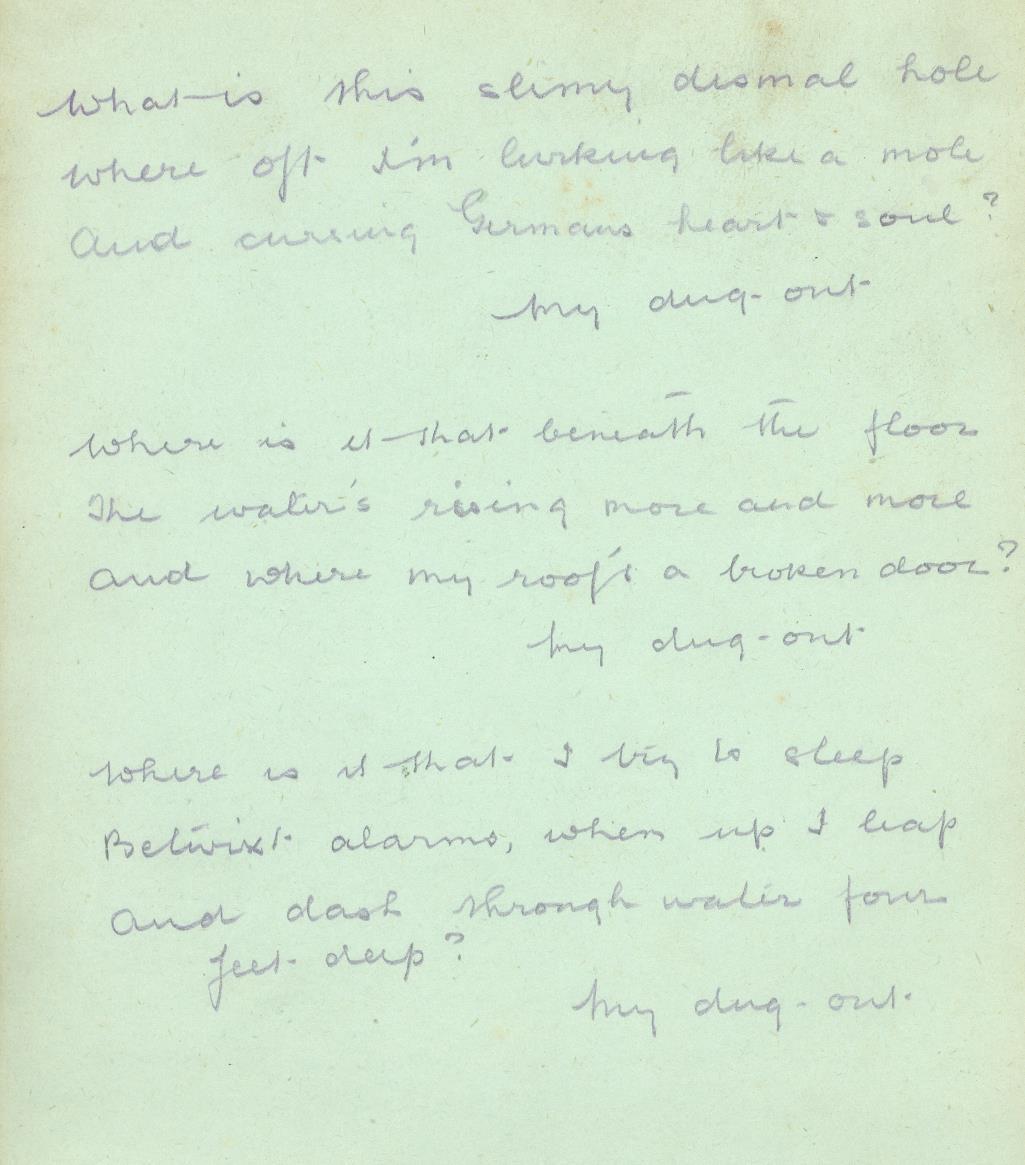 What is this slimy dismal hole
where oft I'm lurking like a mole
And cursing Germans heart & soul?
My dug-out
Where is it that beneath the floor
The water's rising more and more
And where my roof's a broken door?
My dug-out
Where is it that I try to sleep
Betwixt alarms, when up I leap
And dash through water four
feet deep?
My dug-out